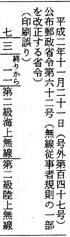 平成二年十一月二十一日(号外第百四十七号)
公布郵政省令第六十二号(無線従事者規則の一部
を改正する省令)
(印刷誤り)
七 三 終りから 一 第二級海上無線 第二級陸上無線